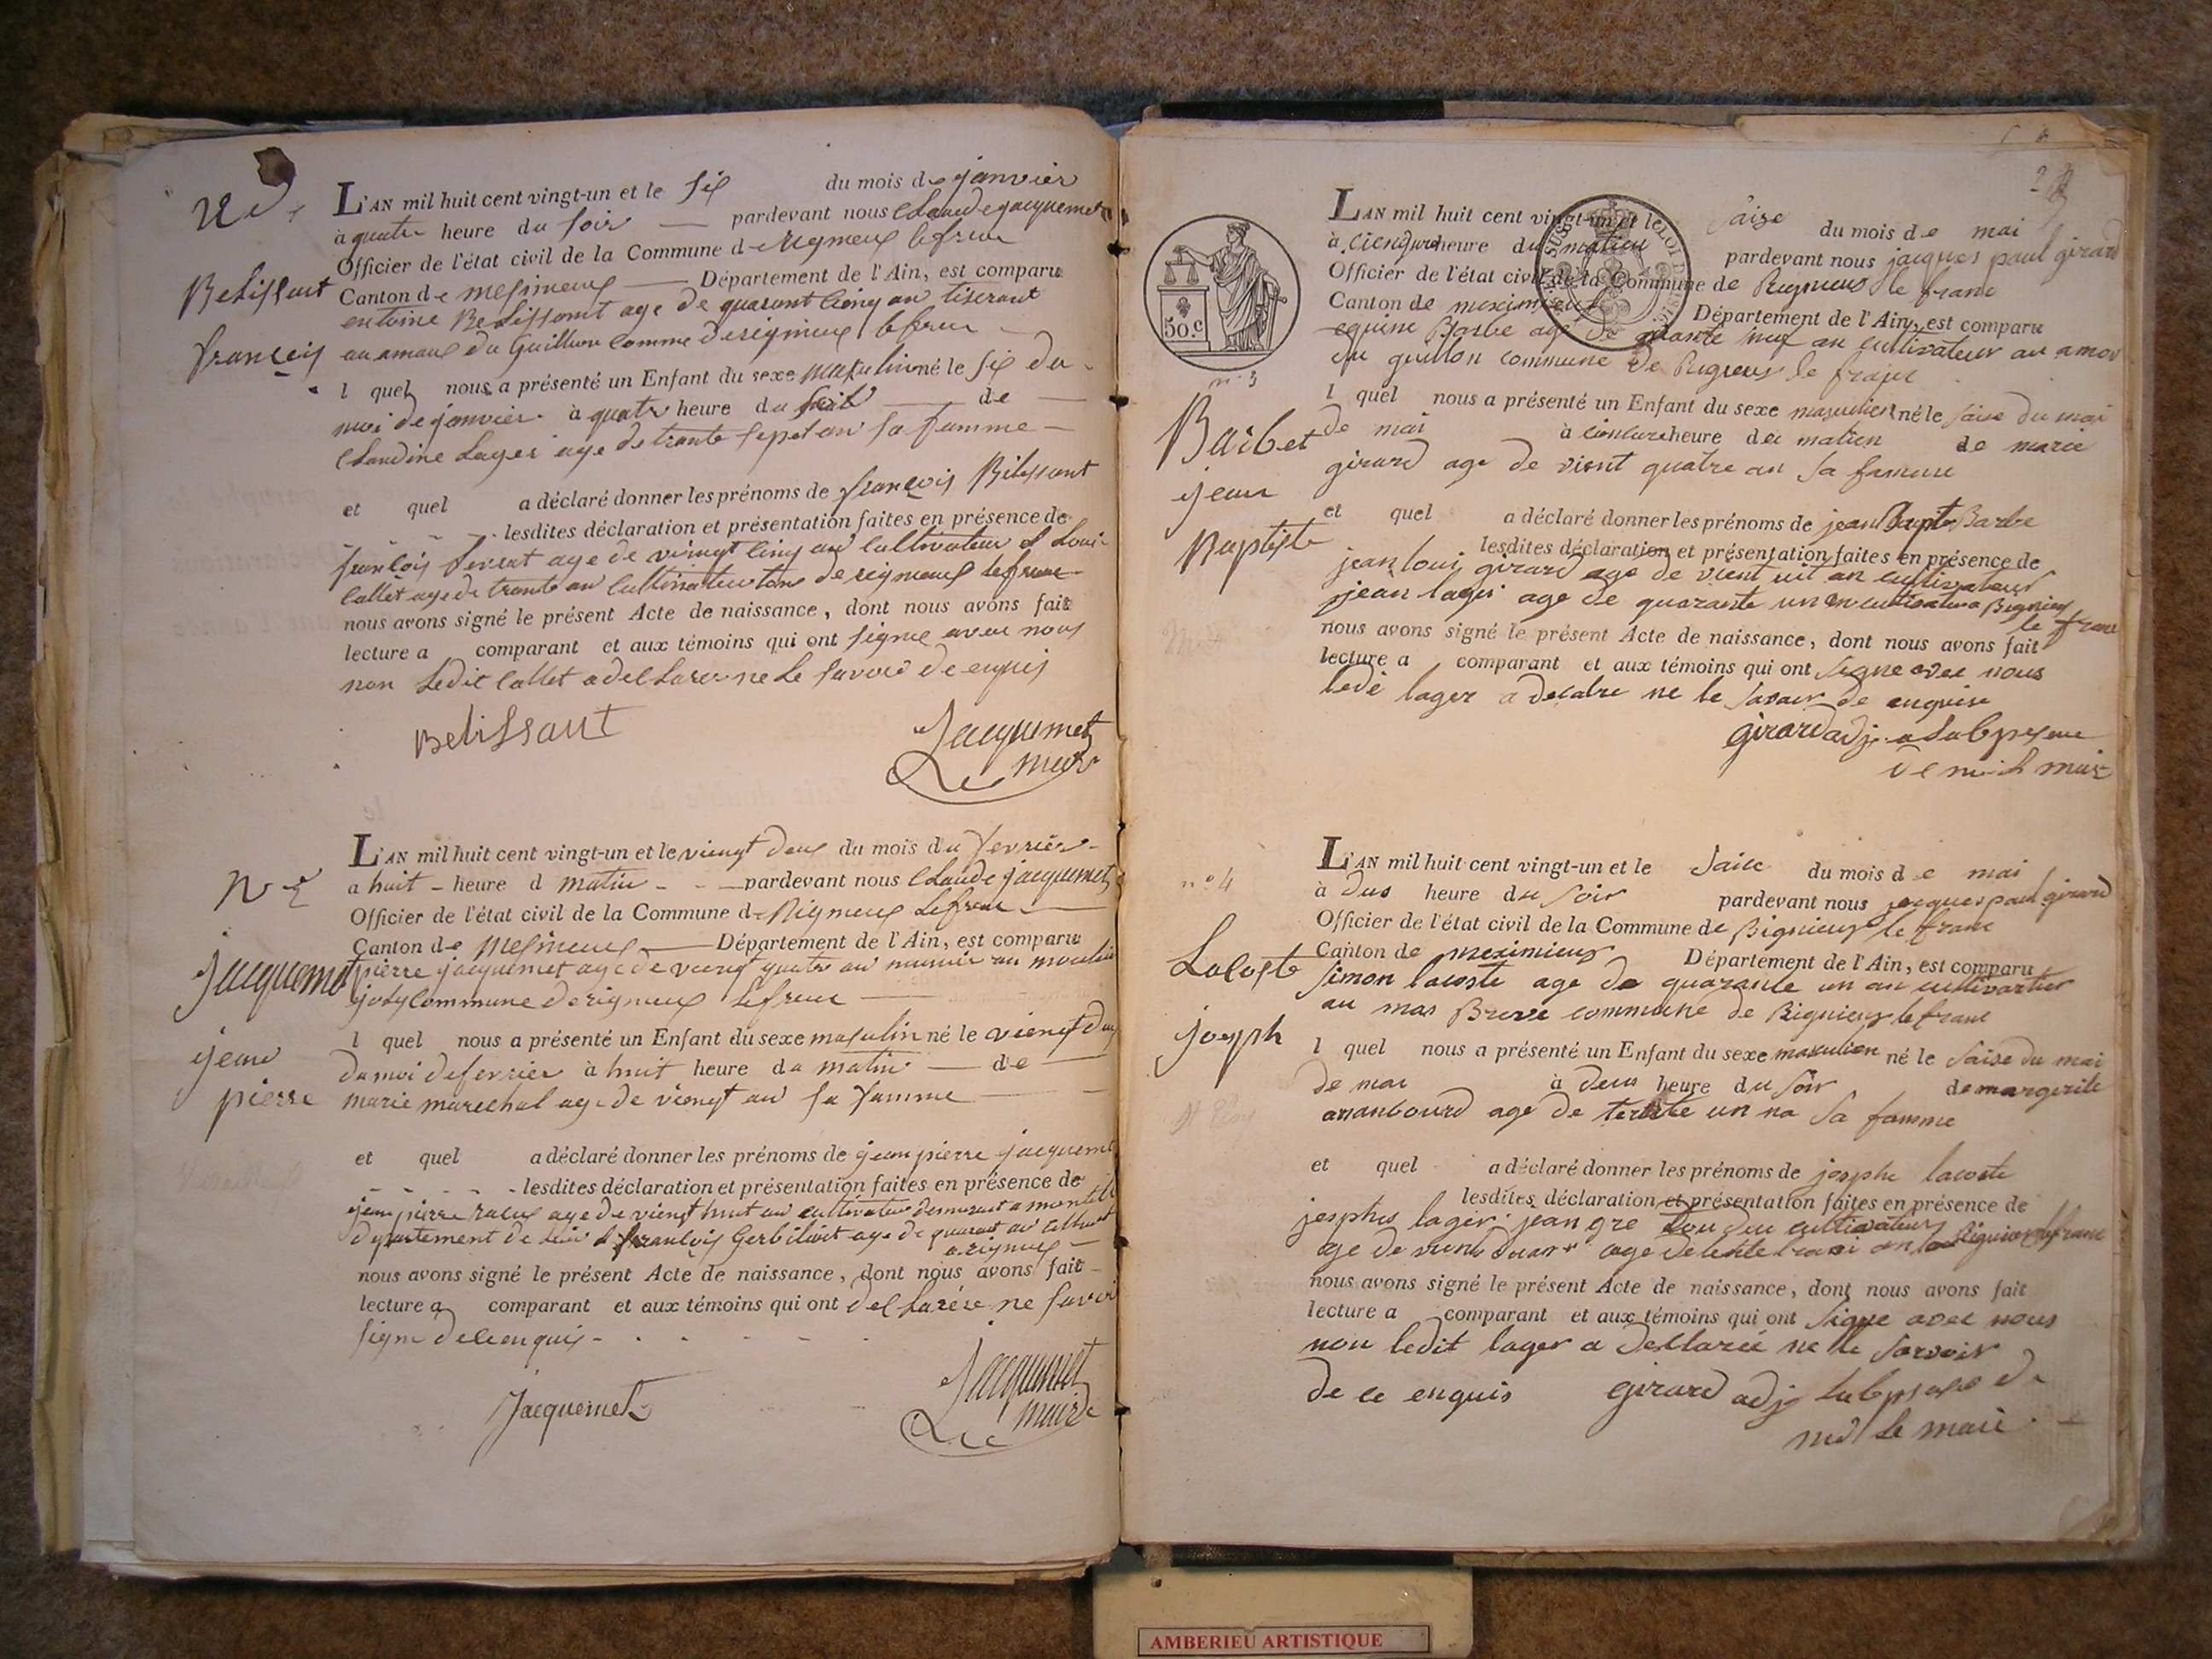 Belissant
françois
L'AN mil huit cent vingt-un et le six du mois de janvier
à quatre heure du soir pardevant nous Claude jacquemet
Officier de l'état civil de la Commune de
Canton de Département de l'Ain, est comparu
entoine Belissant age de quarant cinq an tiserant
au amaux du Guillion Comme de rignieux le franc
l quel nous a présenté un Enfant du sexe masculin né le six du
moi de janvier à quatre heure du soir de
Claudine Lager age de trante sepet an sa famme
et quel a déclaré donner les prénoms de françois Bilissant
lesdites déclaration et présentation faites en présence de
françois age de vieingt cinq an cultivateur et Loui
callet age de trante an cultivateur tous de rigneux le franc
nous avons signé le présent Acte de naissance, dont nous avons fait
lecture a comparant et aux témoins qui ont signe avec nous
non Ledit Callet a ne Le savoir de enquis
Belissant
Jacquemet
maire
N 2
Jacquemet
jean
pierre
L'AN mil huit cent vingt-un et le viengt deux du mois du fevrier
a huit heure d matin pardevant nous Claude jacquemet
Officier de l'état civil de la Commune de Rigneux Le franc
Canton de Département de l'Ain, est comparu
pierre jacquemet age de viengt quatre an munier au moulin
commune de rigneux Le franc
l quel nous a présenté un Enfant du sexe masculin né le viengt deux
du moi de fevrier à huit heure du matin de
marie marechal age de viengt an sa famme
et quel a déclaré donner les prénoms de jean pierre jacquemet
lesdites déclaration et présentation faites en présence de
jean pierre age de viengt huit an cultivateur demeurant a
departement de Lain et françois age de quarant an
a rigneux
nous avons signé le présent Acte de naissance, dont nous avons fait
lecture a comparant et aux témoins qui ont ne savoir
signe de ce enquis
Jacquemet
Jacquemet
maire
50.c
n° 3
Barbet
jean
Baptiste
L'AN mil huit cent vingt-un et le saise du mois de mai
à heure du matien pardevant nous jacques paul girard
Officier de l'état civil de la Commune de Rignieux le franc
Canton de meximieux Département de l'Ain, est comparu
Barbe age de an cultivateur au amos
du guillon commune de Rigneux le franc
l quel nous a présenté un Enfant du sexe né le saise du moi
de mai à heure du matien de marie
girard age de vient quatre an sa famme
et quel a déclaré donner les prénoms de jean Bapte Barbe
lesdites déclaration et présentation faites en présence de
jean loui girard age de vient uit an cultivateur
jean lager age de quarante un an cultivateur a Rignieux
le franc
nous avons signé le présent Acte de naissance, dont nous avons fait
lecture a comparant et aux témoins qui ont signe avec nous
ledi lager a decalre ne le savoir de enquise
girard adj
n° 4
Lacoste
joseph
L'AN mil huit cent vingt-un et le saise du mois de mai
à dus heure du soir pardevant nous jacques paul girard
Officier de l'état civil de la Commune de Rignieux le franc
Canton de meximieux Département de l'Ain, est comparu
simon lacoste age de quarante un an cultivartier
au mas commune de Rignieux le franc
l quel nous a présenté un Enfant du sexe masculien né le saise du moi
de mai à deus heure du soir de margerite
age de un na sa famme
et quel a déclaré donner les prénoms de josphe lacoste
lesdites déclaration et présentation faites en présence de
josphes lager jean gre cultivateur
nous avons signé le présent Acte de naissance, dont nous avons fait
lecture a comparant et aux témoins qui ont signe avec nous
non ledit lager a ne le
de ce enquis girard adj
le maire
AMBERIEU ARTISTIQUE